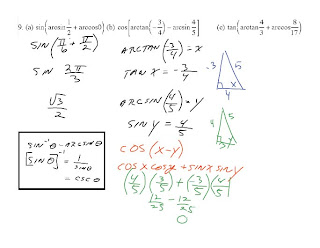 9. (a) sin(arcsin 1/2 + arccos 0) (b) cos[arctan(-3/4) - arcsin 4/5] (c) tan(arctan 4/3 + arccos 8/17)
SIN(π/6 + π/2)
SIN 2π/3
√3/2
sin⁻¹θ = ARCSINθ
[SINθ]⁻¹ = 1/SINθ
= CSCθ
ARCTAN(-3/4) = X
TAN X = -3/4
ARCSIN(4/5) = Y
SIN Y = 4/5
COS(X-Y)
COSX COSY + SINX SINY
(4/5)(3/5) + (-3/5)(4/5)
12/25 - 12/25
0
-3 5
X
4
4 5
3